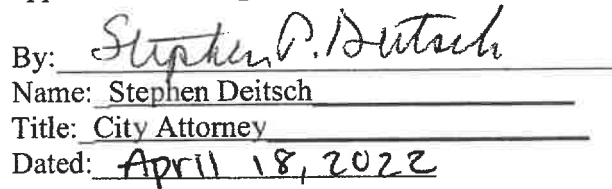 By: Stephen P. Deitsch
Name: Stephen Deitsch
Title: City Attorney
Dated: April 18, 2022